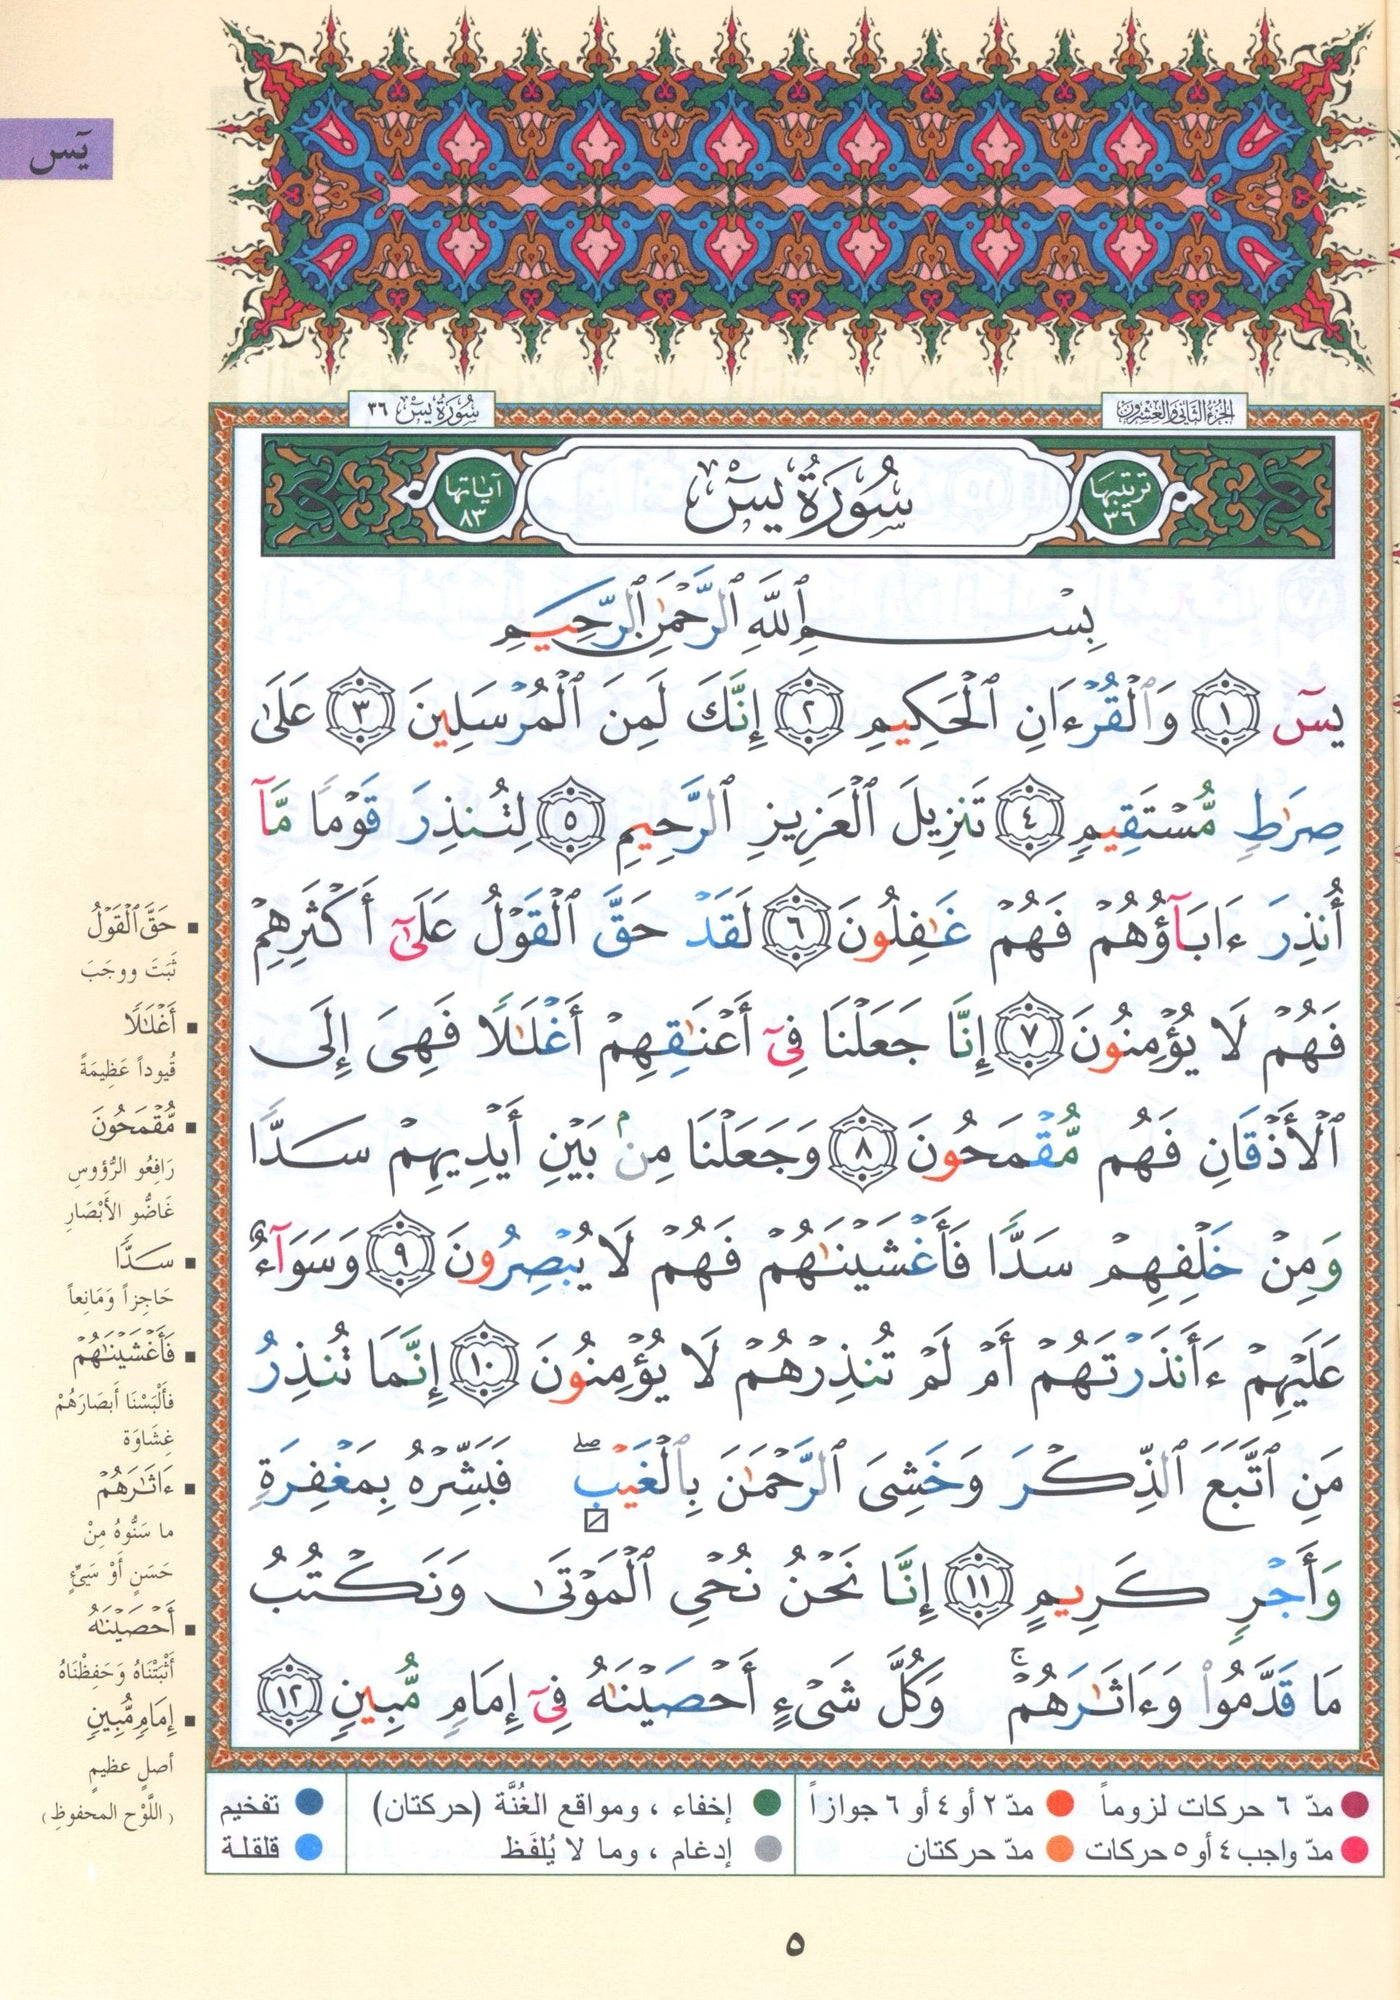 يسٓ
الجزء الثاني والعشرون
سُورَةُ يسٓ ٣٦
ترتيبها ٣٦
سُورَةُ يسٓ
آياتها ٨٣
بِسْمِ ٱللَّهِ ٱلرَّحْمَٰنِ ٱلرَّحِيمِ
يسٓ ١ وَٱلْقُرْءَانِ ٱلْحَكِيمِ ٢ إِنَّكَ لَمِنَ ٱلْمُرْسَلِينَ ٣ عَلَىٰ
صِرَٰطٍ مُّسْتَقِيمٍ ٤ تَنزِيلَ ٱلْعَزِيزِ ٱلرَّحِيمِ ٥ لِتُنذِرَ قَوْمًا مَّآ
أُنذِرَ ءَابَآؤُهُمْ فَهُمْ غَٰفِلُونَ ٦ لَقَدْ حَقَّ ٱلْقَوْلُ عَلَىٰٓ أَكْثَرِهِمْ
فَهُمْ لَا يُؤْمِنُونَ ٧ إِنَّا جَعَلْنَا فِىٓ أَعْنَٰقِهِمْ أَغْلَٰلًا فَهِىَ إِلَى
ٱلْأَذْقَانِ فَهُم مُّقْمَحُونَ ٨ وَجَعَلْنَا مِنۢ بَيْنِ أَيْدِيهِمْ سَدًّا
وَمِنْ خَلْفِهِمْ سَدًّا فَأَغْشَيْنَٰهُمْ فَهُمْ لَا يُبْصِرُونَ ٩ وَسَوَآءٌ
عَلَيْهِمْ ءَأَنذَرْتَهُمْ أَمْ لَمْ تُنذِرْهُمْ لَا يُؤْمِنُونَ ١٠ إِنَّمَا تُنذِرُ
مَنِ ٱتَّبَعَ ٱلذِّكْرَ وَخَشِىَ ٱلرَّحْمَٰنَ بِٱلْغَيْبِ ۖ فَبَشِّرْهُ بِمَغْفِرَةٍ
وَأَجْرٍ كَرِيمٍ ١١ إِنَّا نَحْنُ نُحْىِ ٱلْمَوْتَىٰ وَنَكْتُبُ
مَا قَدَّمُوا۟ وَءَاثَٰرَهُمْ ۚ وَكُلَّ شَىْءٍ أَحْصَيْنَٰهُ فِىٓ إِمَامٍ مُّبِينٍ ١٢
▪ حَقَّ ٱلْقَوْلُ
ثَبَتَ ووجَبَ
▪ أَغْلَٰلًا
قُيوداً عَظِيمَةً
▪ مُّقْمَحُونَ
رَافِعُو الرُّؤوسِ
غَاضُّو الأَبْصَارِ
▪ سَدًّا
حَاجِزاً وَمَانِعاً
▪ فَأَغْشَيْنَٰهُمْ
فألْبَسْنَا أَبصَارَهُمْ
غِشَاوَة
▪ ءَاثَٰرَهُمْ
ما سَنُّوهُ مِنْ
حَسَنٍ أَوْ سَيِّئٍ
▪ أَحْصَيْنَٰهُ
أَثْبَتْنَاهُ وَحَفِظْنَاهُ
▪ إِمَامٍ مُّبِينٍ
أصلٍ عظيمٍ
(اللَّوْحِ المحفوظِ)
مدّ ٦ حركات لزوماً
مدّ ٢ أو ٤ أو ٦ جوازاً
إخفاء ، ومواقع الغُنَّة (حركتان)
تفخيم
مدّ واجب ٤ أو ٥ حركات
مدّ حركتان
إدغام ، وما لا يُلفَظ
قلقلة
٥